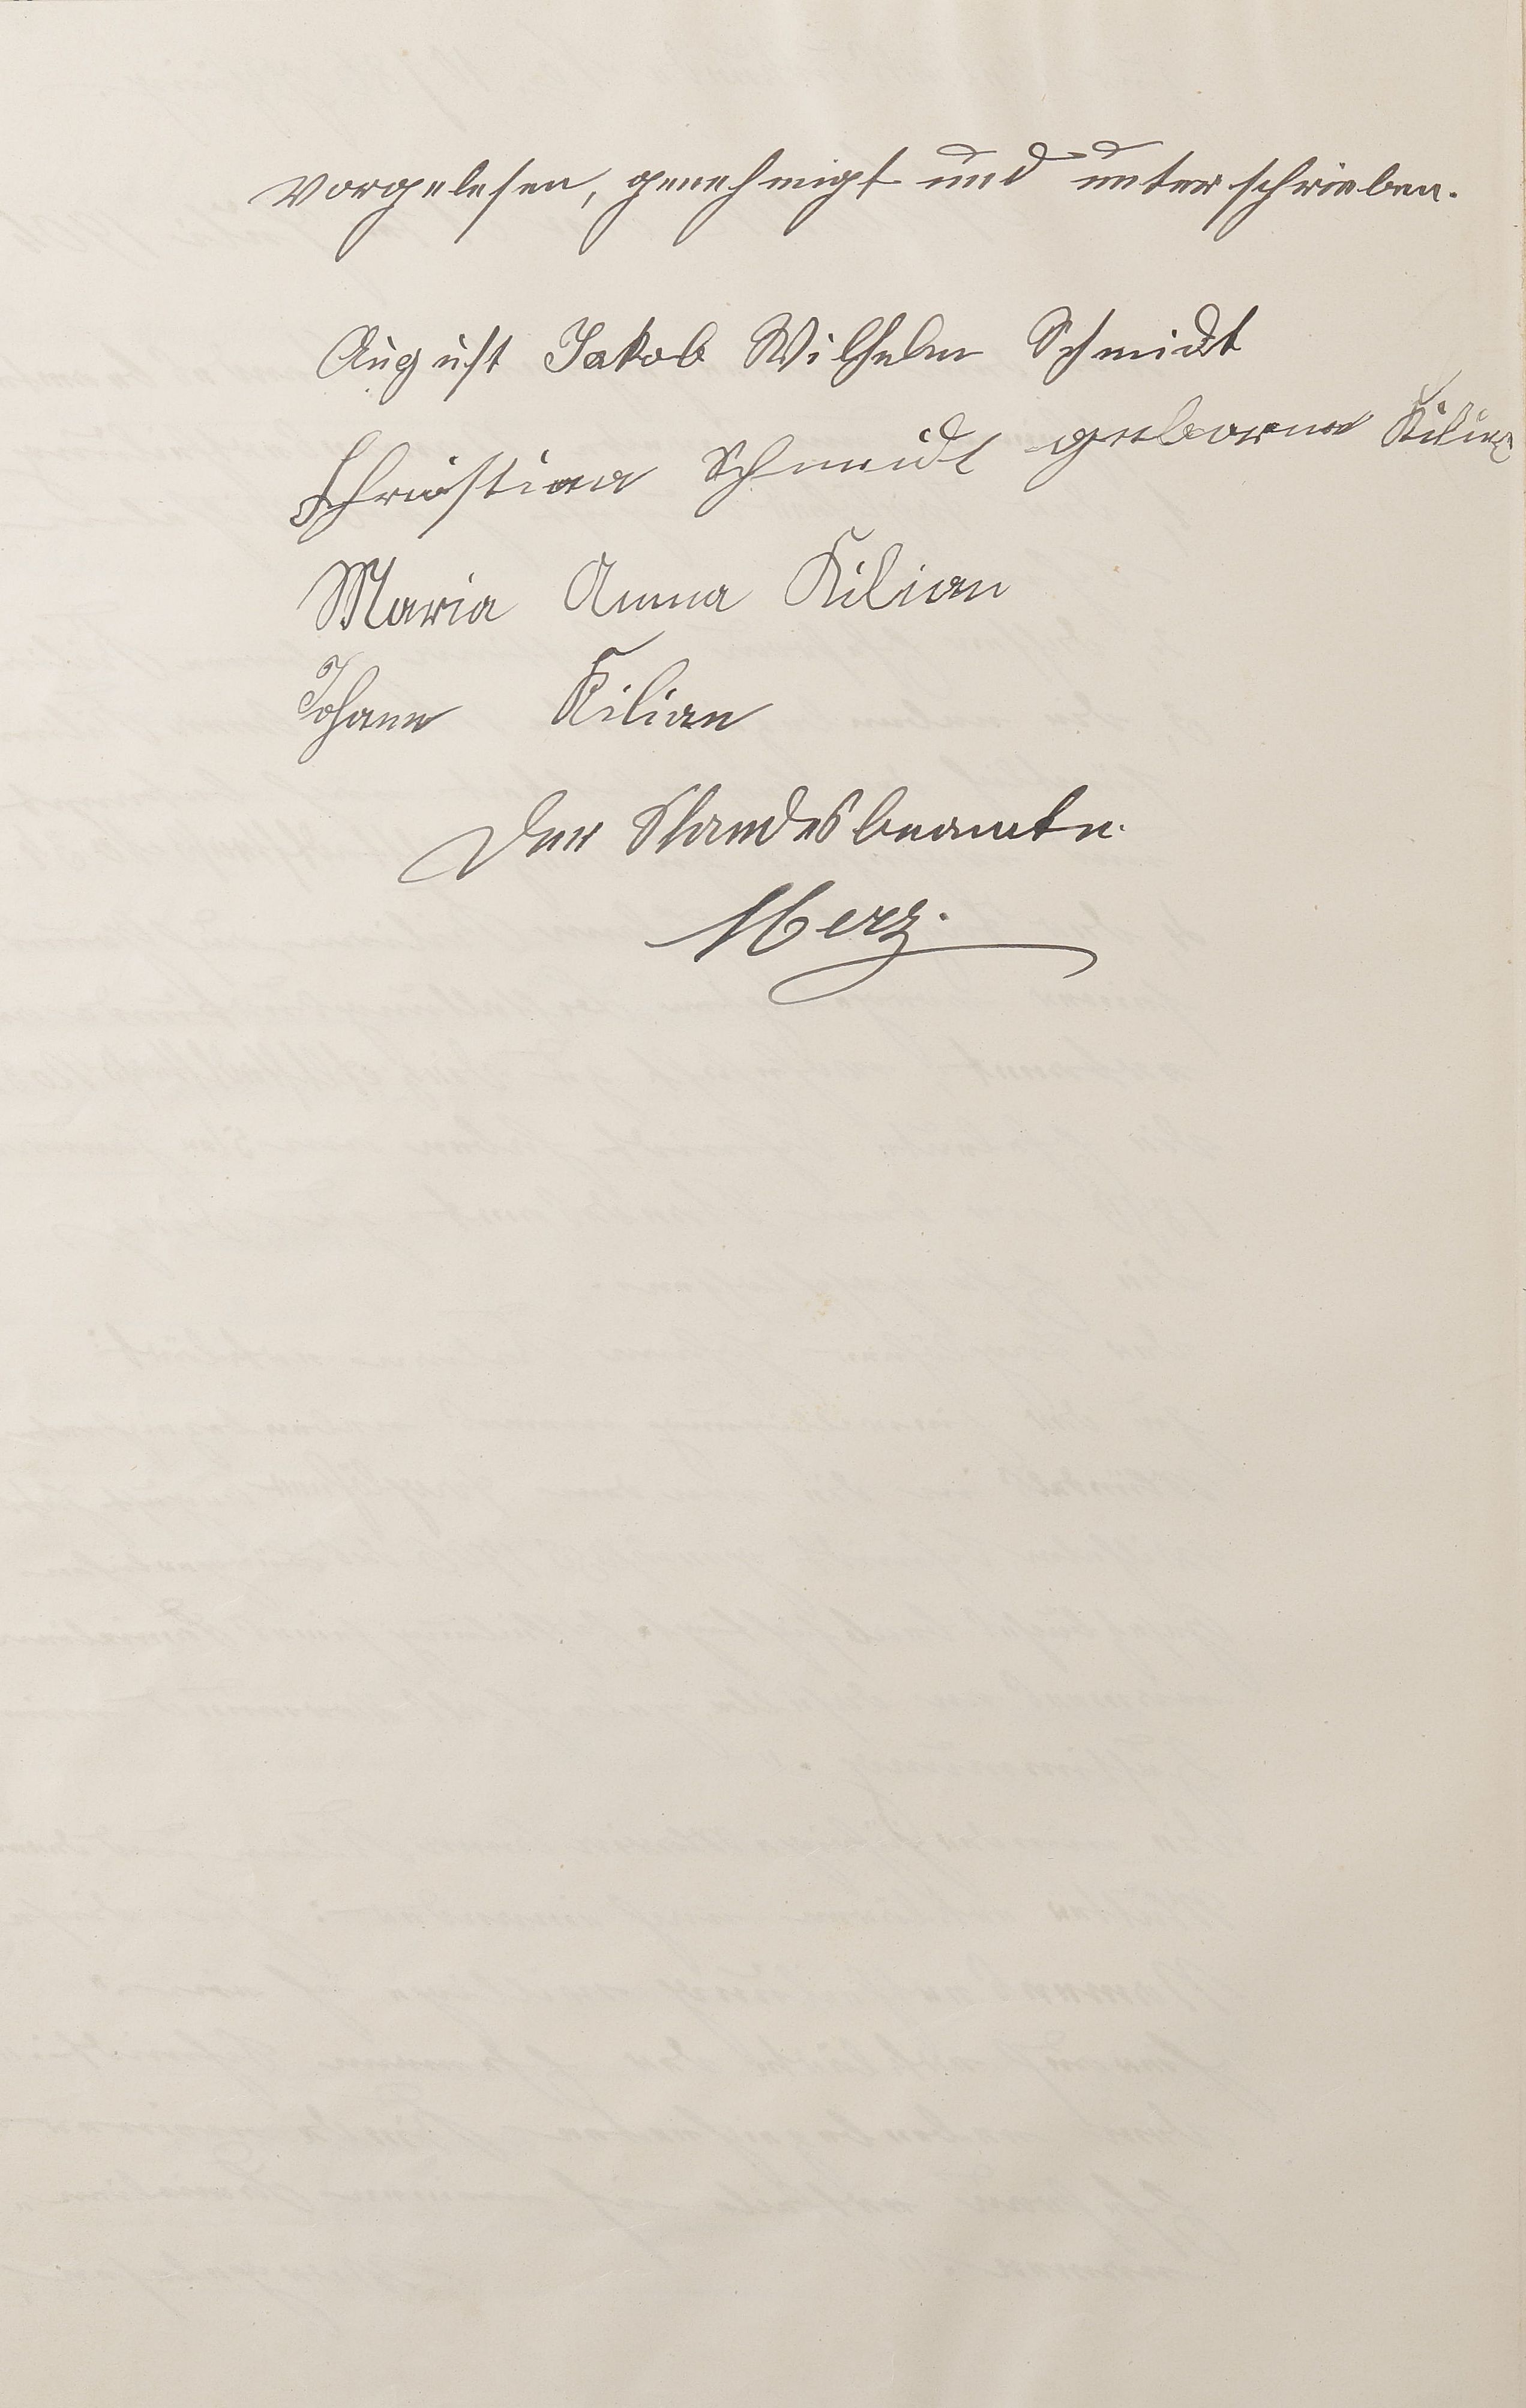 vorgelesen, genehmigt und unterschrieben.
August Jakob Wilhelm Schmidt
Christian Schmidt geborne Kilian
Maria Anna Kilian
Johann Kilian
Der Standesbeamte.
Merz.